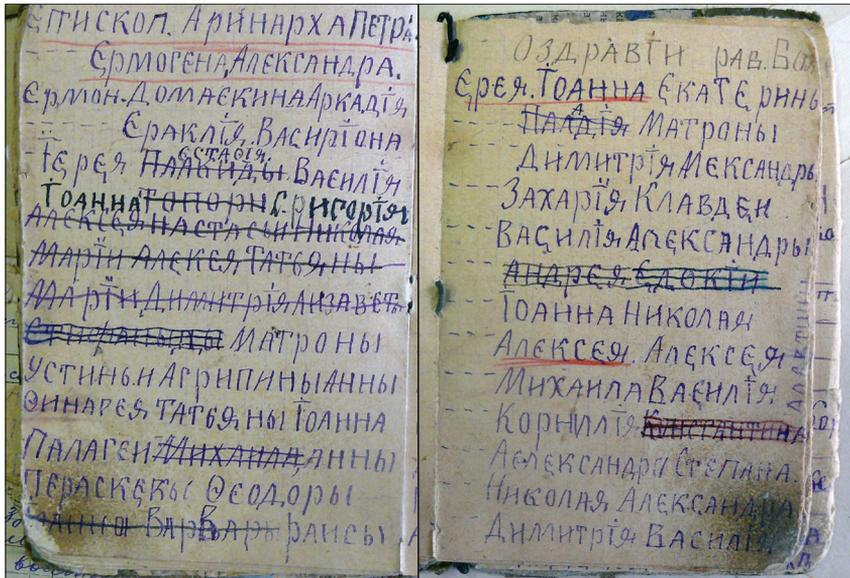 Єпископ. Аринарха Петра.
Єрмогена, Александра.
Єрмон. Домаскина Аркадїя
Єраклїя. Васирїона
Їєрея Естафїя. Василїя
Їоанна Топорн С. Григорїя
Алексєя Настасьи Николая
Марїи Алексея Татьяны
Марїи Димитрїя Лизавет
Матроны
Устиньи Агрипины Анны
Финарея Татьяны Їоанна
Палагеи Михаила Анны
Пераскевы Ѳеодоры
Варвары раисы
Оздравїи раб. Бож
Єрея. Їоанна Єкатерины
Паладїя Матроны
Димитрїя Александры
Захарїя Клавдеи
Василїя Александры
Андрея Єдокїи
Їоанна Николая
Алексєя. Алексєя
Михаила Василїя
Корнилїя Константина
Александра Степана.
Николая Александра
Димитрїя Василїя